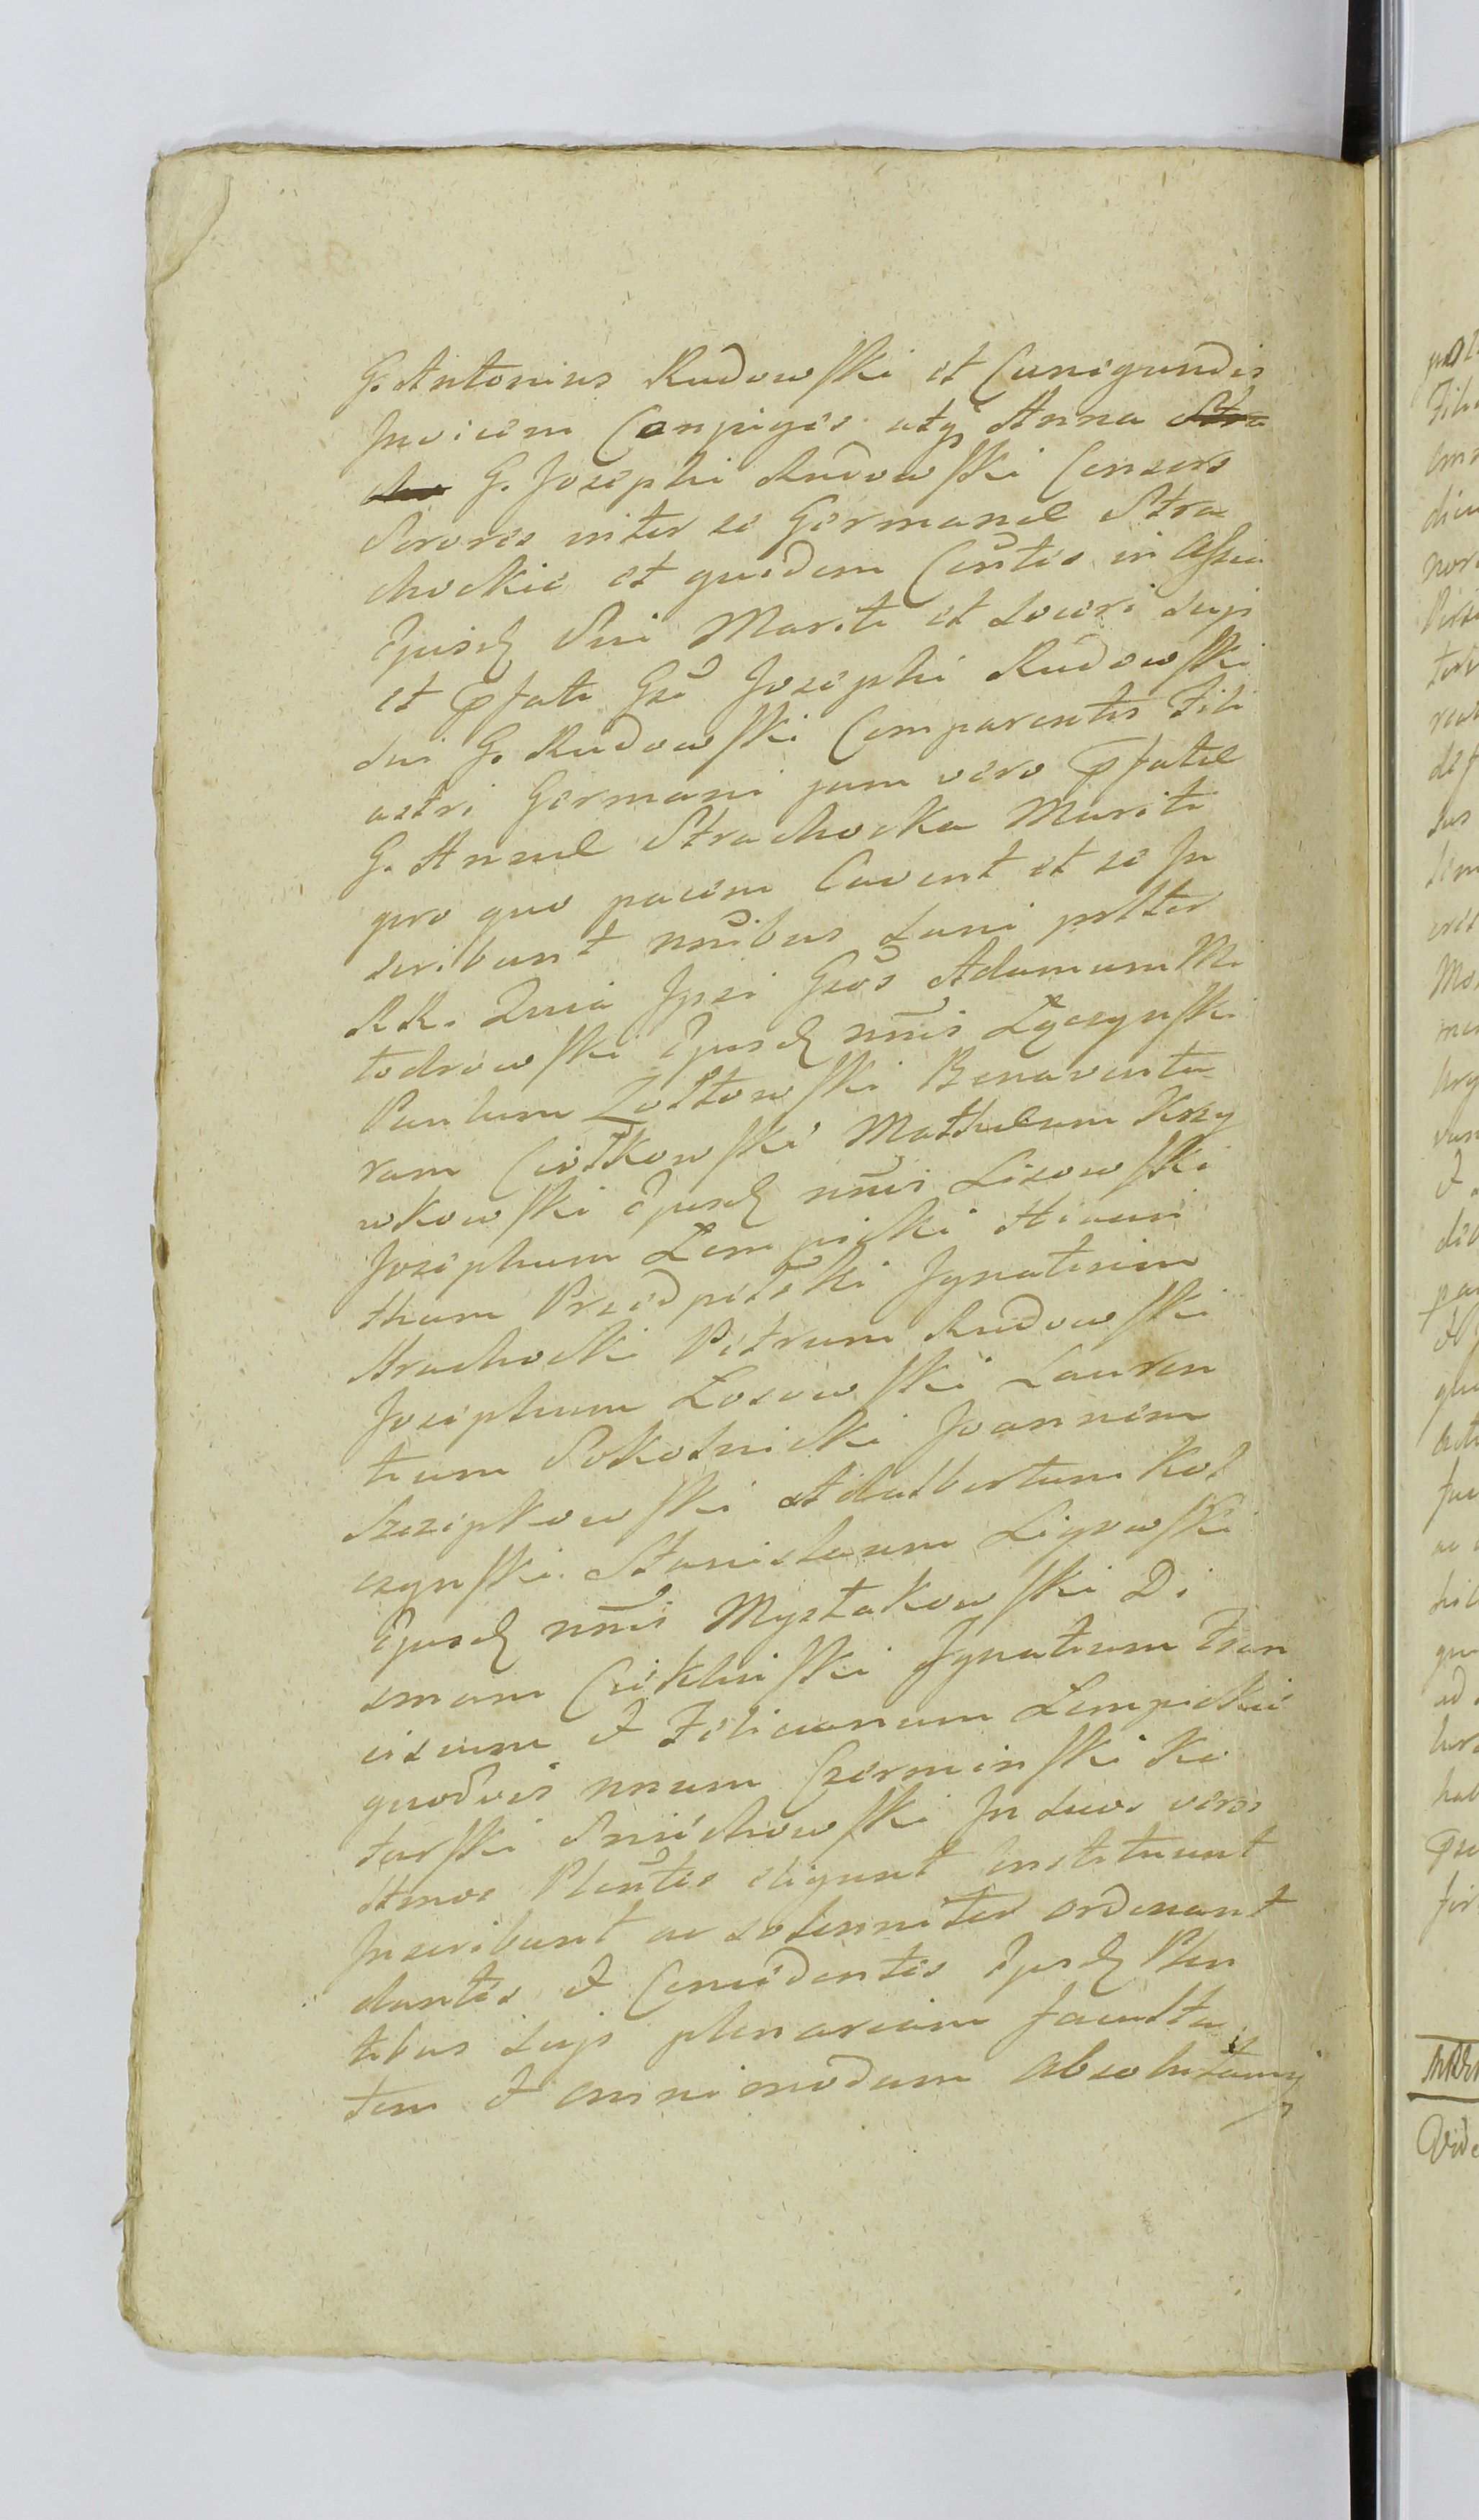 G. Antonius Rudowski et Cunegundis
Invicem Conjuges atq Anna Stra
cho G. Josephi Rudowski Consors
Sorores inter se Germanæ Stra
chockie et quidem Cntes in Assia
Ejusd Sui Mariti et Soceri sup
et pfati Gsi Josephi Rudowski
sui G. Rudowski Comparentis Fili
astri Germani jam vero pfatæ
G. Annæ Strachocka Mariti
pro quo pacem Cavent et se In
scribunt nnibus suni pltter
RR. Quia Ipsi Gsos Adamum Mi
todrowski Ejusd nnis Łączynski
Paulum Zołtowski Bonaventu
ram Ciołkowski Mathæum Krzy
wkowski Ejusd nnis Lisowski
Josephum Łempicki Hiacin
thum Przedpełski Ignatium
Strachocki Petrum Rudowski
Josephum Łosowski Lauren
tium Sokolnicki Joannem
Szczepkowski Adalbertum Kol
czynski Stanislaum Ligowski
Ejusd nnis Mystakowski Di
smam Cieklinski Ignatium Fran
ciscum & Felicianum Łempickie
quodvis unum Czerminski Ke
tarski Sniechowski In suos veros
Amos Plntes eligunt Instituunt
Inscribunt ac solenniter ordinant
dantes & Concedentes Ejusd Plen
tibus sup plenariam faculta
tem & omnimodam absolutamq